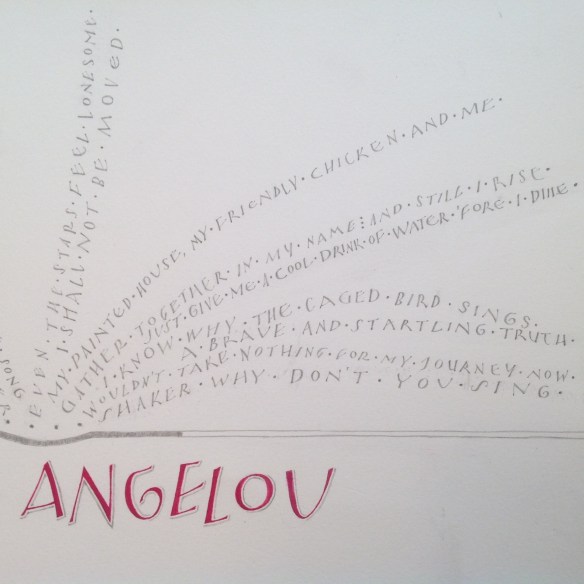 SONG
EVEN · THE · STARS · FEEL · LONESOME ·
I · SHALL · NOT · BE · MOVED ·
MY · PAINTED · HOUSE, MY · FRIENDLY · CHICKEN · AND · ME ·
GATHER · TOGETHER · IN · MY · NAME ⋮ AND · STILL · I · RISE ·
JUST · GIVE · ME · A · COOL · DRINK · OF · WATER · 'FORE · I · DIIIE ·
I · KNOW · WHY · THE · CAGED · BIRD · SINGS ·
A · BRAVE · AND · STARTLING · TRUTH ·
WOULDN'T · TAKE · NOTHING · FOR · MY · JOURNEY · NOW ·
SHAKER · WHY · DON'T · YOU · SING ·
ANGELOU